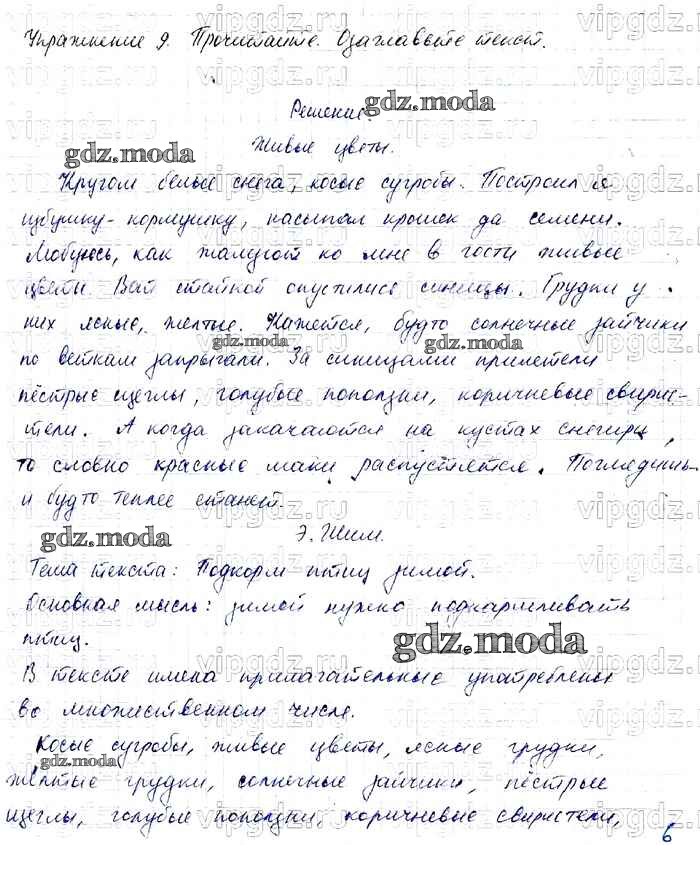 Упражнение 9. Прочитайте. Озаглавьте текст.
Решение.
Живые цветы.
Кругом белые снега, косые сугробы. Построил я
избушку-кормушку, насыпал крошек да семени.
Любуюсь, как жалуют ко мне в гости живые
цветы. Вай стайкой опустились синицы. Грудки у
них ясные, желтые. Кажется, будто солнечные зайчики
по веткам запрыгали. За синицами прилетели
пёстрые щеглы, голубые поползни, коричневые свирис-
тели. А когда закачаются на кустах снегири,
то словно красные маки распустятся. Поглядишь
и будто теплее станет.
Э. Шим.
Тема текста: Подкорм птиц зимой.
Основная мысль: зимой нужно подкармливать
птиц.
В тексте имена прилагательные употреблены
во множественном числе.
Косые сугробы, живые цветы, ясные грудки,
жёлтые грудки, солнечные зайчики, пёстрые
щеглы, голубые поползни, коричневые свиристели,
6
gdz.moda
vipgdz.ru